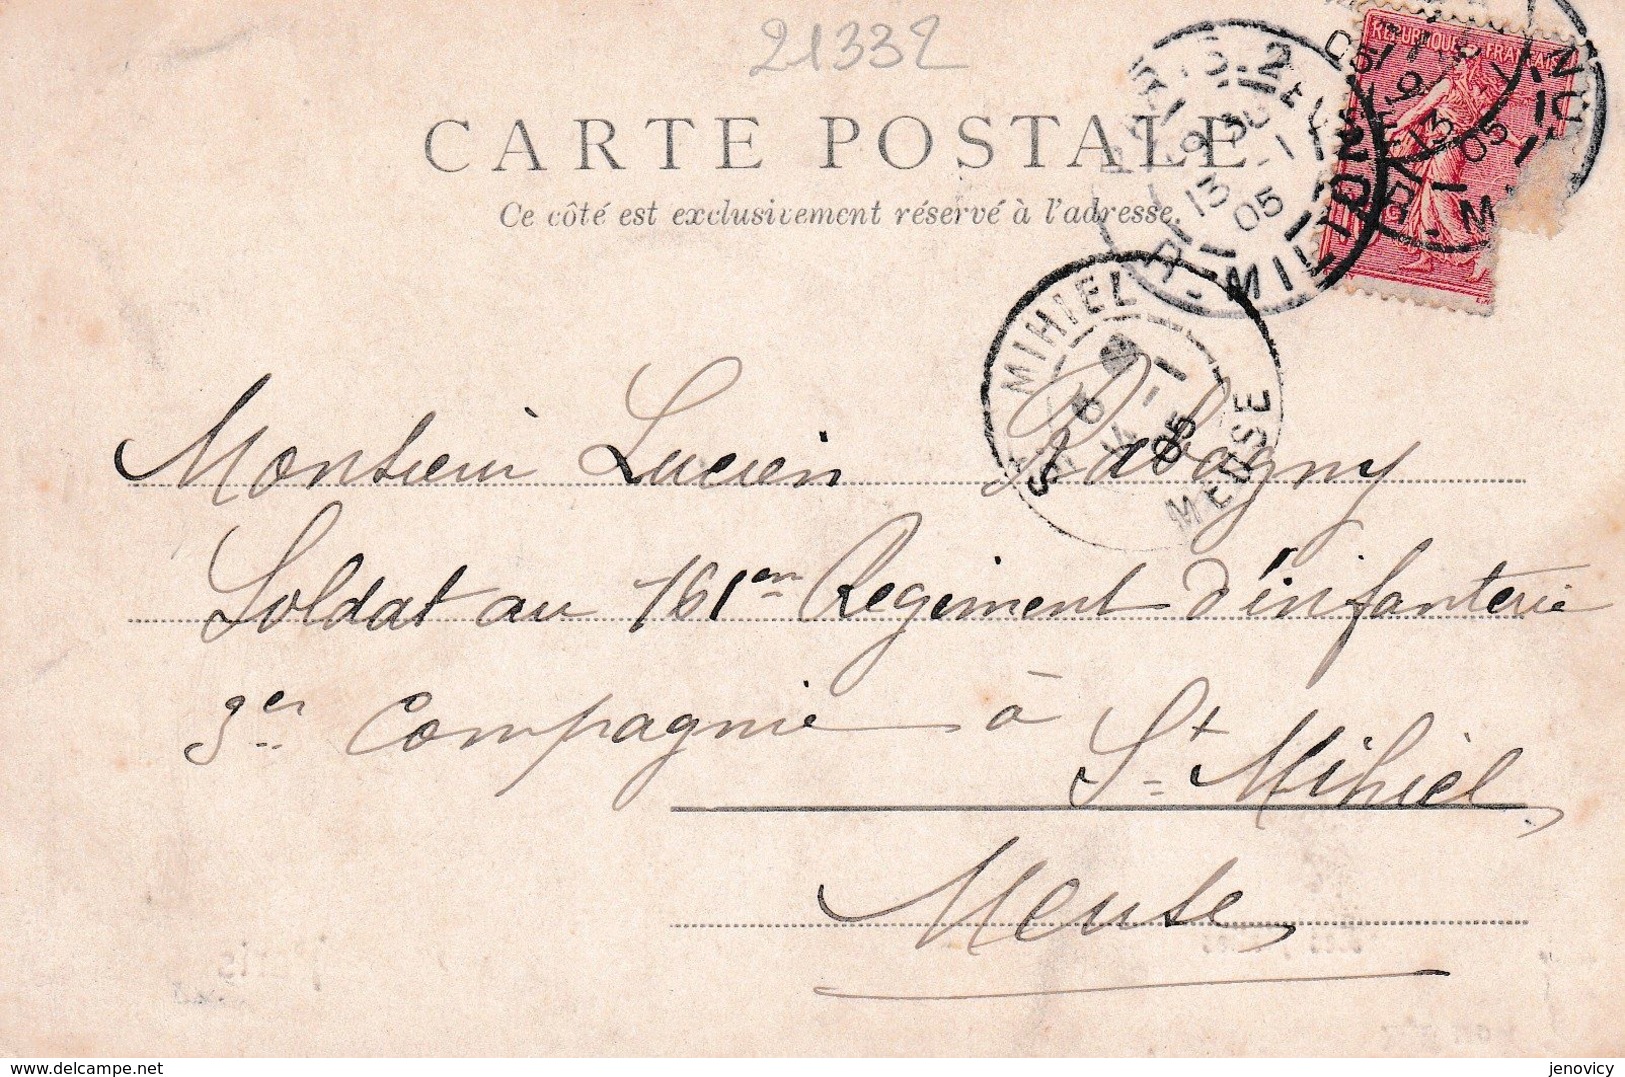 21332
CARTE POSTALE
Ce côté est exclusivement réservé à l'adresse.
REPUBLIQUE FRANÇAISE
13 -1 05
ST MIHIEL
MEUSE
Monsieur Lucien Rabagny
Soldat au 161em Regiment d'infanterie
3em Compagnie à
St Mihiel
Meuse
delcampe.net
jenovicy